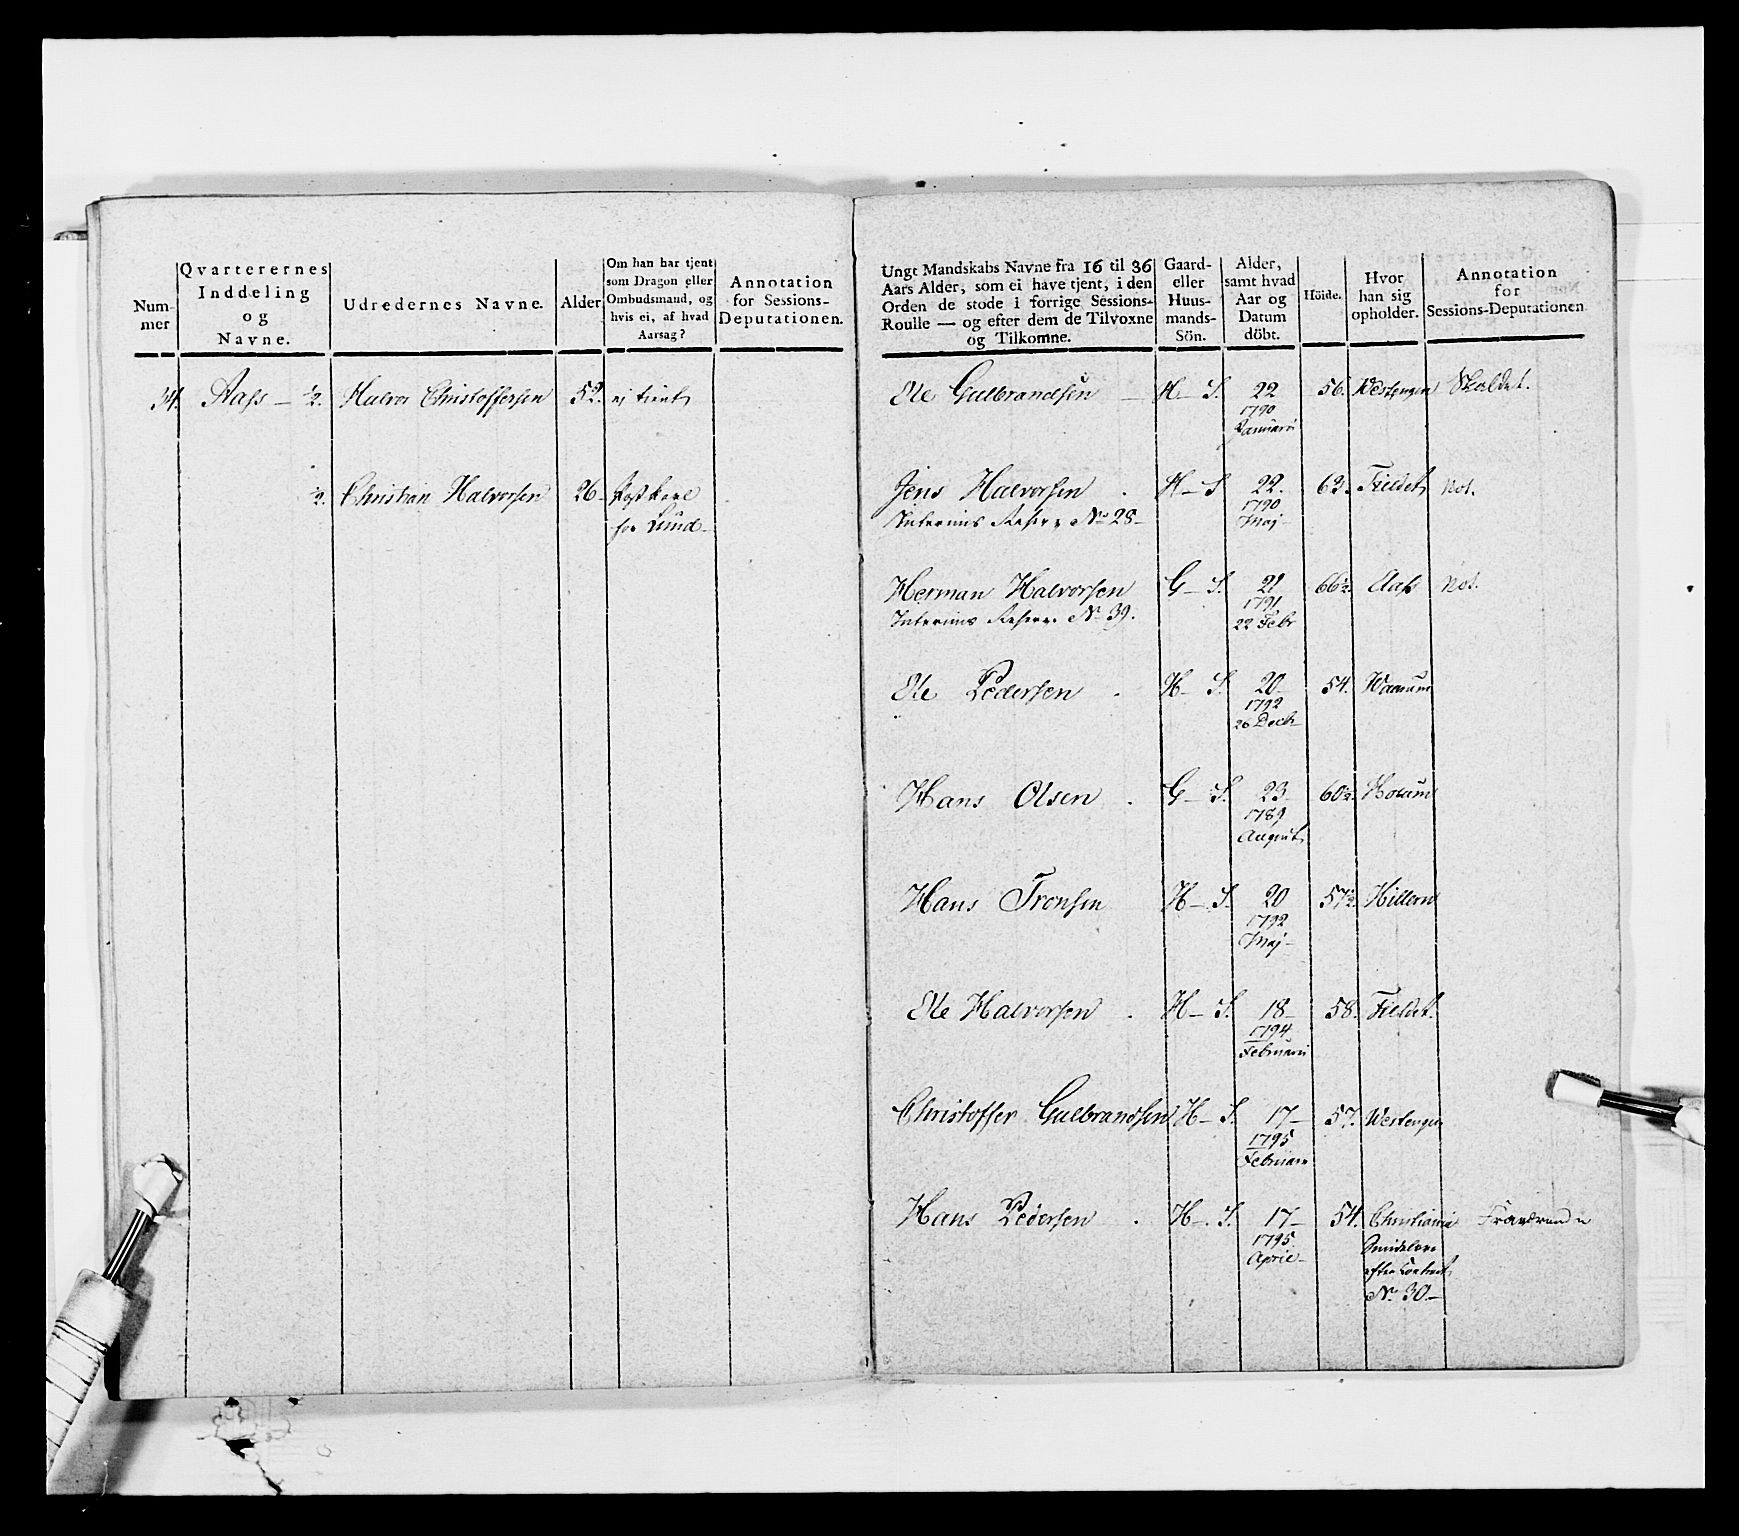 Num-
mer
Qvarterernes
Inddeling
og
Navne.
Udredernes Navne.
Alder
Om han har tjent
som Dragon eller
Ombudsmand, og
hvis ei, af hvad
Aarsag?
Annotation
for Sessions-
Deputationen.
34. Aass — ½. Halvor Christoffersen 52. ej tient
½. Christian Halvorsen 26 Postkarl
for Lund
Ungt Mandskabs Navne fra 16 til 36
Aars Alder, som ei have tjent, i den
Orden de stode i forrige Sessions-
Roulle — og efter dem de Tilvoxne
og Tilkomne.
Gaard-
eller
Huus-
mands-
Sön.
Alder,
samt hvad
Aar og
Datum
döbt.
Höide.
Hvor
han sig
opholder.
Annotation
for
Sessions-Deputationen
Ole Gulbrandsen — H — S. 22 56. Westengen Skaldet.
1790
Januari
Jens Halvorsen . H — S 22. 62. Fieldet Not.
Interims Reserv No 28 — 1790
Maj —
Herman Halvorsen G — S. 21 66½. Aass Not.
Interims Reserv No 39. 1791
22 Febr
Ole Pedersen . H — S. 20 54. Waarum
1792
26 Decb
Hans Olsen . G — S. 23 60½.
1789
August
Hans Tronsen H — S. 20 57½. Hillern
1792
Maj —
Ole Halvorsen . H — S. 18 — 58. Fieldet.
1794
Februari
Christoffer Gulbrandsen H — S. 17 — 57. Westengen
1795
Februari
Hans Pedersen . H — S. 17 — 54. Christiania Fraværende
1795 Smidelære
April — efter Contract
No 30 —